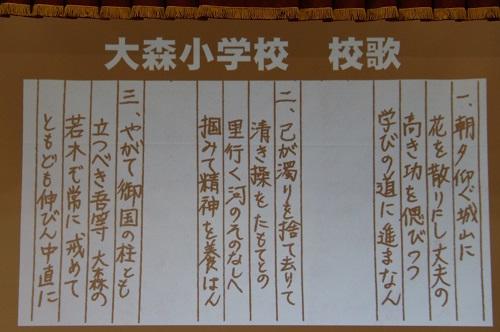 大森小学校 校歌
一、朝夕仰ぐ城山に
花を散りにし丈夫の
高き功を偲びつつ
学びの道に進まなん
二、己が濁りを捨て去りて
清き操をたもてとの
里行く河のそのなしへ
掴みて精神を養はん
三、やがて御国の柱とも
立つべき吾等大森の
若木ぞ常に戒めて
ともども伸びん中直に